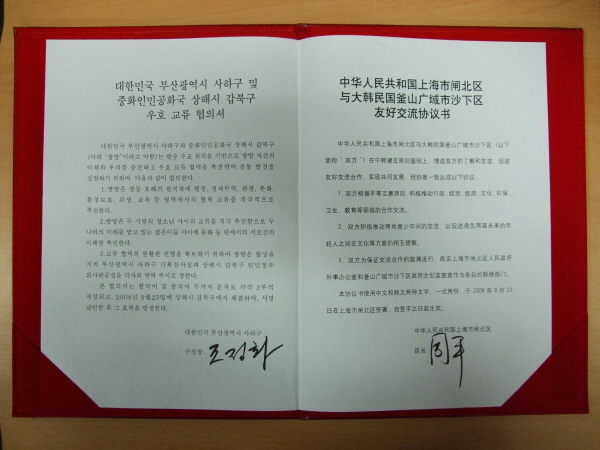 대한민국 부산광역시 사하구 및
중화인민공화국 상해시 갑북구
우호 교류 협의서
대한민국 부산광역시 사하구와 중화인민공화국 상해시 갑북구
(이하 "쌍방"이라고 약함)는 한중 수교 원칙을 기반으로 쌍방 적간의
이해와 우의를 증진하고 우호 교류 협력을 촉진하며 공동 발전을
실현하기 위하여 다음과 같이 합의한다.
1.쌍방은 평등 호혜의 원칙하에 행정, 경제무역, 관광, 문화,
환경보호, 위생, 교육 등 영역에서의 협력 교류를 적극적으로
추진한다.
2.쌍방은 두 지방의 청소년 사이의 교류를 적극 추진함으로 두
나라의 미래를 맡고 있는 젊은이들 사이에 문화 등 면에서의 서로간의
이해를 촉진한다.
3.교류 협력의 원활한 진행을 확보하기 위하여 쌍방은 협상을
거쳐 부산광역시 사하구 기획감사실과 상해시 갑북구 인민정부
외사판공실을 각자의 연락 부서로 정한다.
본 협의서는 한국어 및 중국어 두가지 문자로 각각 2부씩
작성되고, 2008년 9월23일에 상해시 갑북구에서 체결하며, 서명
날인한 후 그 효력을 발생한다.
대한민국 부산광역시 사하구
구청장 조정화
中华人民共和国上海市闸北区
与大韩民国釜山广域市沙下区
友好交流协议书
中华人民共和国上海市闸北区与大韩民国釜山广域市沙下区（以下
简称"双方"）在中韩建交原则基础上，增进双方的了解和友谊，促进
友好交流合作，实现共同发展，经协商一致达成以下协议。
1、双方根据平等互惠原则，积极推动行政、经贸、旅游、文化、环保、
卫生、教育等领域的合作交流。
2、双方积极推动两地青少年间的交流，以促进肩负两国未来的年
轻人之间在文化等方面的相互理解。
3、双方为保证交流合作的圆满进行，商定上海市闸北区人民政府
外事办公室和釜山广域市沙下区政府企划监查室作为各自的联络部门。
本协议书使用中文和韩文两种文字，一式两份，于 2008 年 9 月 23
日在上海市闸北区签署，自签字之日起生效。
中华人民共和国上海市闸北区
区长 周平